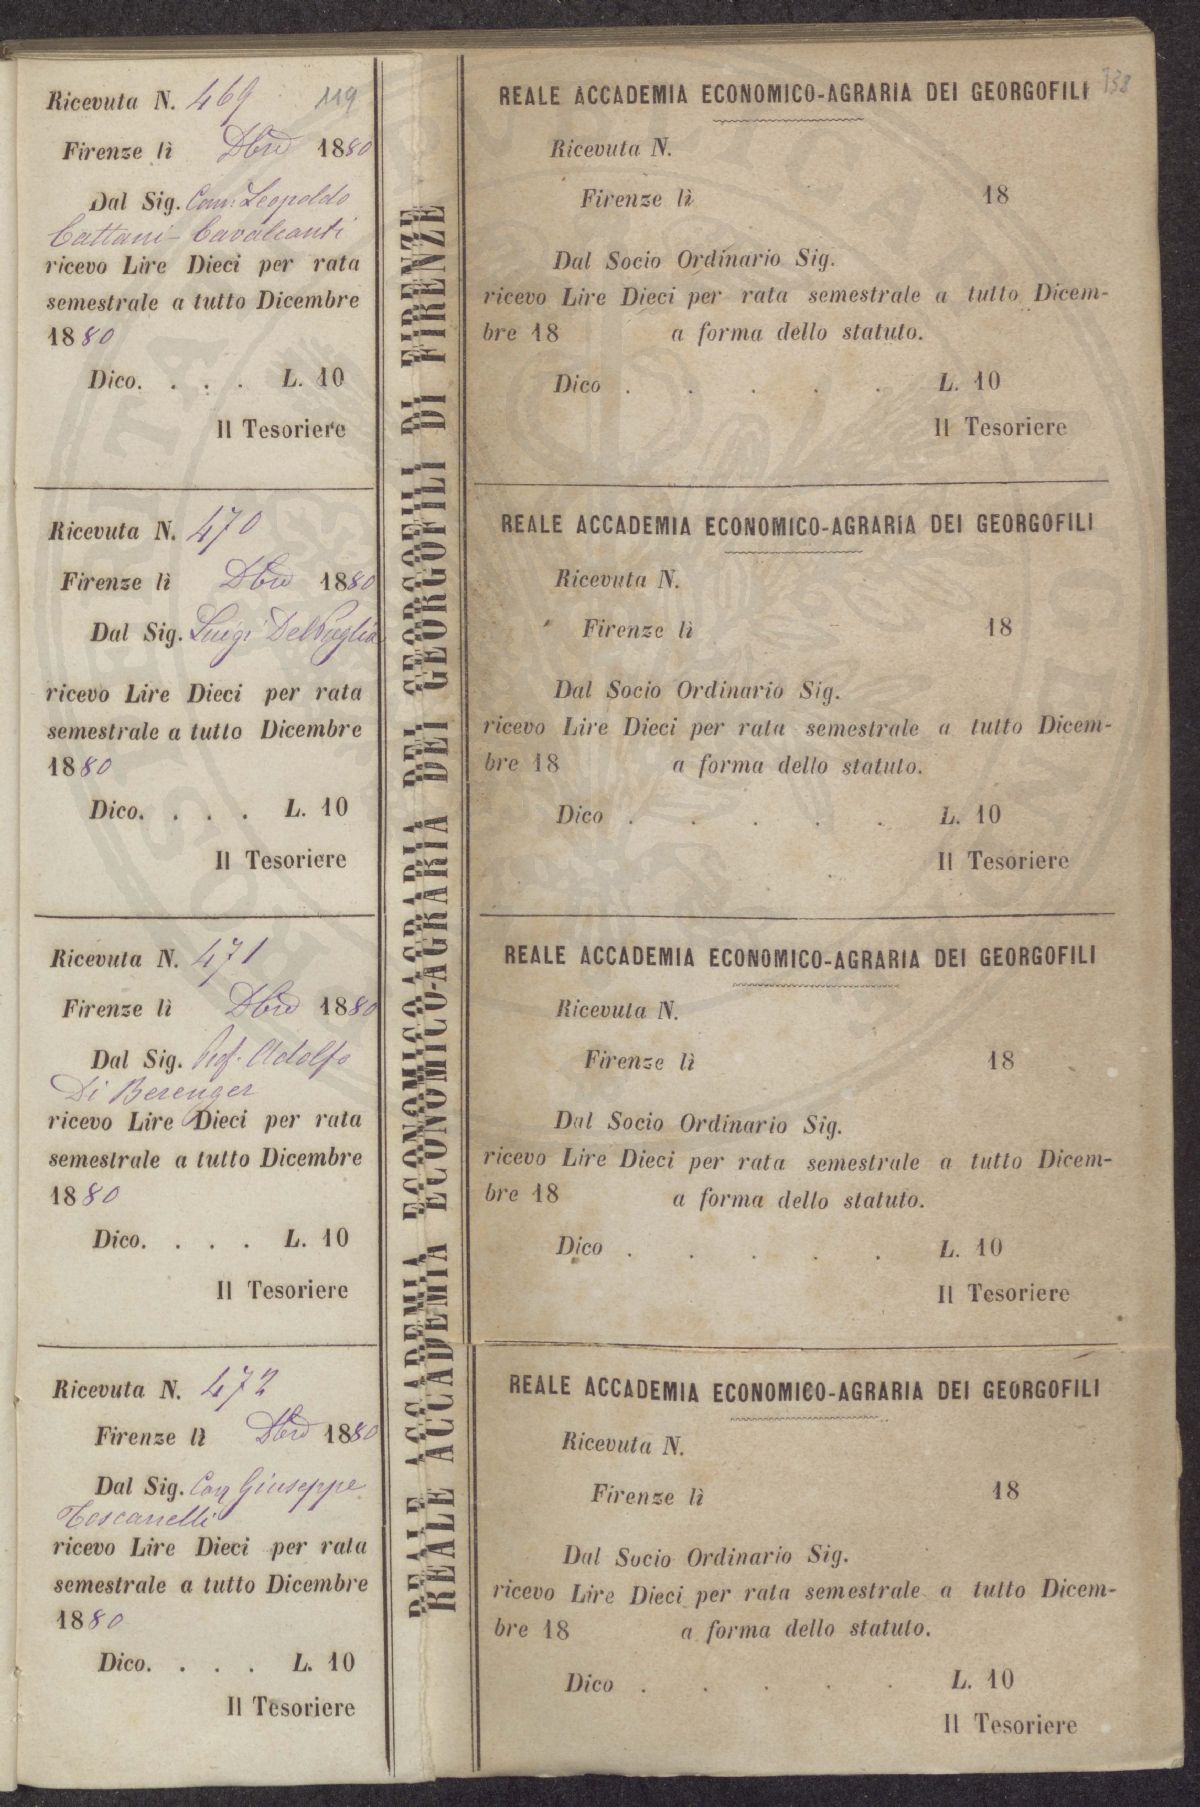 Ricevuta N. 469 119
Firenze lì Dbre 1880
Dal Sig. Com. Leopoldo
Cattani-Cavalcanti
ricevo Lire Dieci per rata
semestrale a tutto Dicembre
1880
Dico. . . . L. 10
Il Tesoriere
Ricevuta N. 470
Firenze lì Dbre 1880
Dal Sig. Luigi Del Puglia
ricevo Lire Dieci per rata
semestrale a tutto Dicembre
1880
Dico. . . . L. 10
Il Tesoriere
Ricevuta N. 471
Firenze lì Dbre 1880
Dal Sig. Prof. Adolfo
Di Berenger
ricevo Lire Dieci per rata
semestrale a tutto Dicembre
1880
Dico. . . . L. 10
Il Tesoriere
Ricevuta N. 472
Firenze lì Dbre 1880
Dal Sig. Cav Giuseppe
Toscanelli
ricevo Lire Dieci per rata
semestrale a tutto Dicembre
1880
Dico. . . . L. 10
Il Tesoriere
REALE ACCADEMIA ECONOMICO-AGRARIA DEI GEORGOFILI DI FIRENZE
REALE ACCADEMIA ECONOMICO-AGRARIA DEI GEORGOFILI DI FIRENZE
REALE ACCADEMIA ECONOMICO-AGRARIA DEI GEORGOFILI
Ricevuta N.
Firenze lì 18
Dal Socio Ordinario Sig.
ricevo Lire Dieci per rata semestrale a tutto Dicem-
bre 18 a forma dello statuto.
Dico . . . . . L. 10
Il Tesoriere
REALE ACCADEMIA ECONOMICO-AGRARIA DEI GEORGOFILI
Ricevuta N.
Firenze lì 18
Dal Socio Ordinario Sig.
ricevo Lire Dieci per rata semestrale a tutto Dicem-
bre 18 a forma dello statuto.
Dico . . . . . L. 10
Il Tesoriere
REALE ACCADEMIA ECONOMICO-AGRARIA DEI GEORGOFILI
Ricevuta N.
Firenze lì 18
Dal Socio Ordinario Sig.
ricevo Lire Dieci per rata semestrale a tutto Dicem-
bre 18 a forma dello statuto.
Dico . . . . . L. 10
Il Tesoriere
REALE ACCADEMIA ECONOMICO-AGRARIA DEI GEORGOFILI
Ricevuta N.
Firenze lì 18
Dal Socio Ordinario Sig.
ricevo Lire Dieci per rata semestrale a tutto Dicem-
bre 18 a forma dello statuto.
Dico . . . . . L. 10
Il Tesoriere